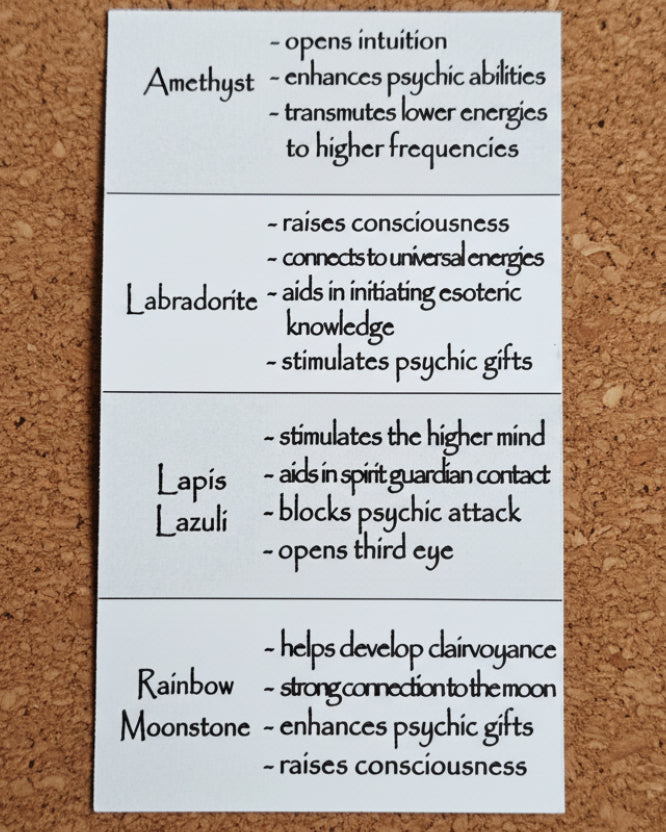 Amethyst
- opens intuition
- enhances psychic abilities
- transmutes lower energies
to higher frequencies
Labradorite
- raises consciousness
- connects to universal energies
- aids in initiating esoteric
knowledge
- stimulates psychic gifts
Lapis
Lazuli
- stimulates the higher mind
- aids in spirit guardian contact
- blocks psychic attack
- opens third eye
Rainbow
Moonstone
- helps develop clairvoyance
- strong connection to the moon
- enhances psychic gifts
- raises consciousness